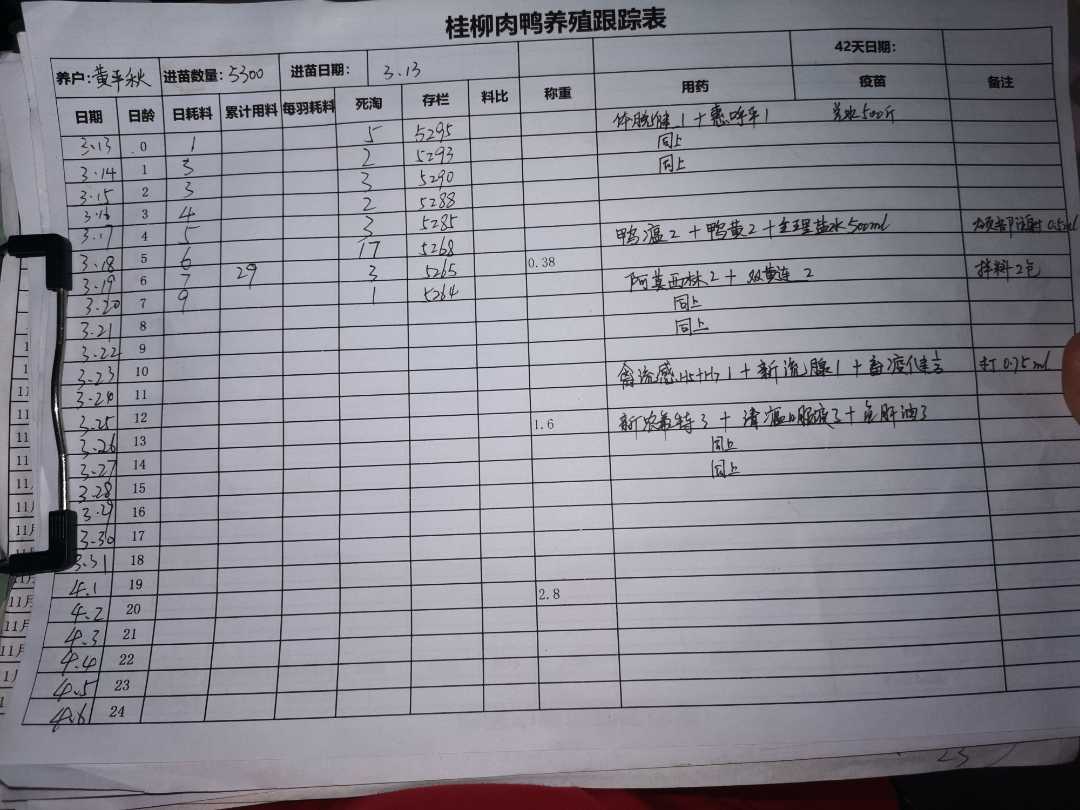 桂柳肉鸭养殖跟踪表
养户: 黄平秋 进苗数量: 5300 进苗日期: 3.13 42天日期:
日期 日龄 日耗料 累计用料 每羽耗料 死淘 存栏 料比 称重 用药 疫苗 备注
3.13 0 1 5 5295 1 + 惠呼平1 兑水500斤
3.14 1 3 2 5293 同上
3.15 2 3 3 5290 同上
3.16 3 4 2 5288
3.17 4 5 3 5285
3.18 5 6 17 5268 鸭瘟2 + 鸭黄2 + 生理盐水500ml 颈部注射0.5ml
3.19 6 7 29 3 5265 0.38
3.20 7 9 1 5264 阿莫西林2 + 双黄连2 拌料2包
3.21 8 同上
3.22 9 同上
3.23 10
3.24 11 禽流感H5+H7 1 + 新流腺1 + 打0.75ml
3.25 12
3.26 13 1.6 3 + 3 + 鱼肝油3
3.27 14 同上
3.28 15 同上
3.29 16
3.30 17
3.31 18
4.1 19
4.2 20 2.8
4.3 21
4.4 22
4.5 23
4.6 24